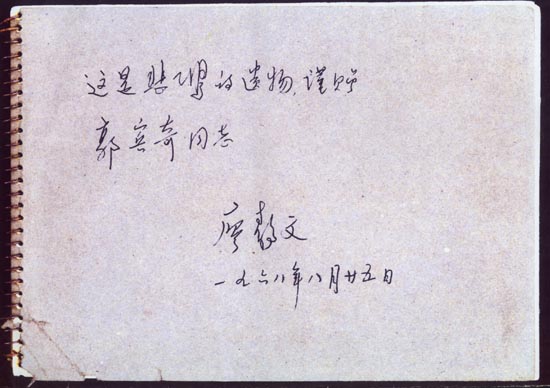 这是悲鸿的遗物,谨赠
郭兴奇同志
廖静文
一九六八年八月廿五日